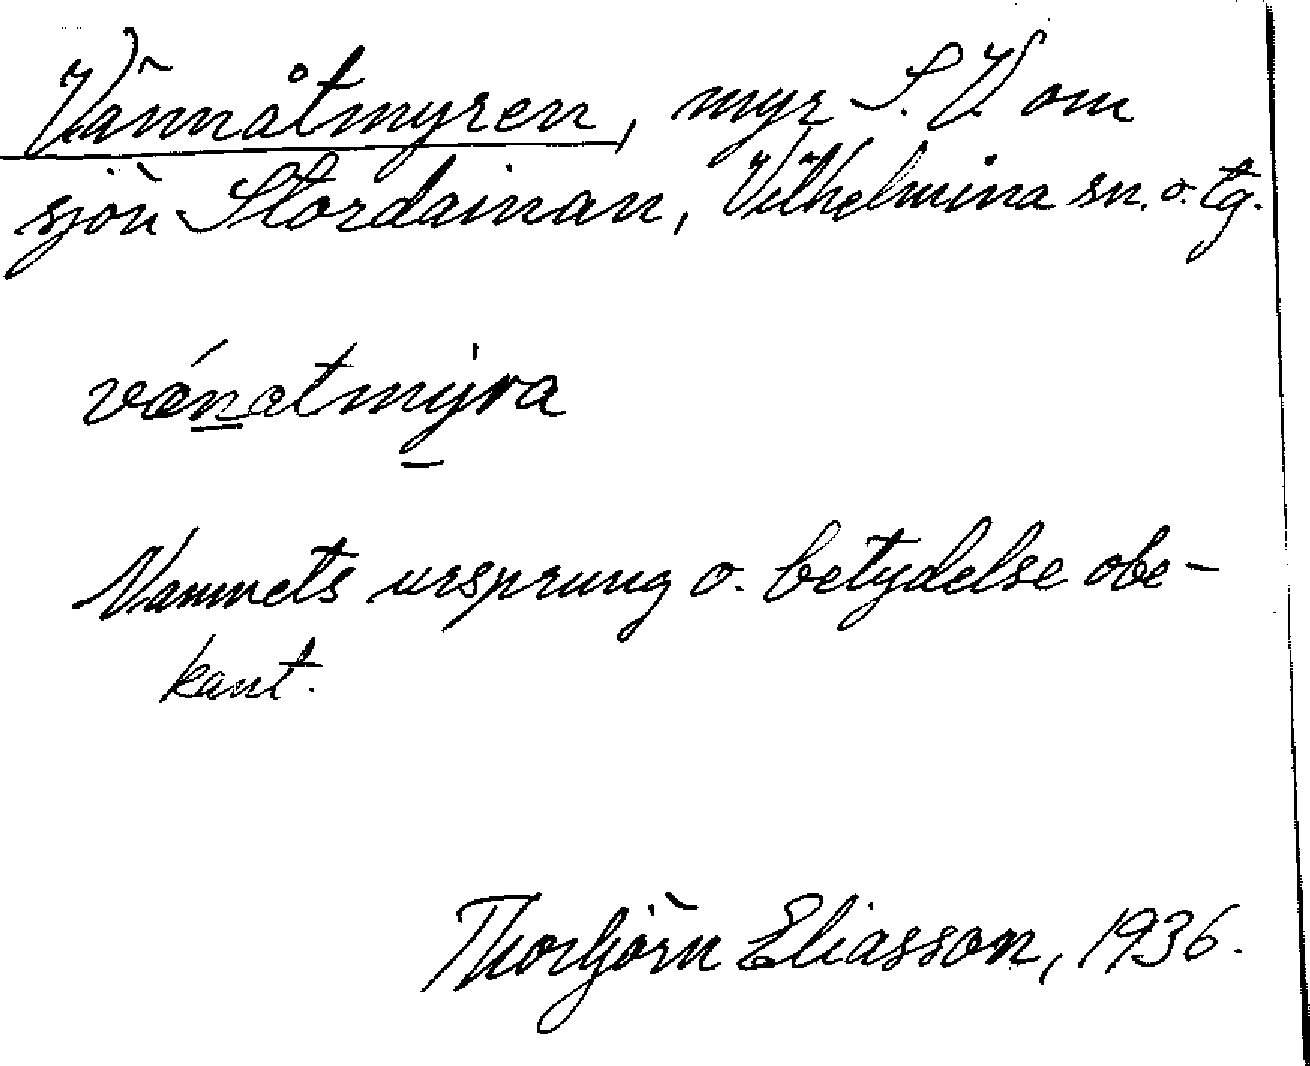 Vännåtmyren, myr S.V. om
sjön Stordainan, Vilhelmina sn. o. tg.
vǽnatmýra
Namnets ursprung o. betydelse obe-
kant.
Thorbjörn Eliasson, 1936.